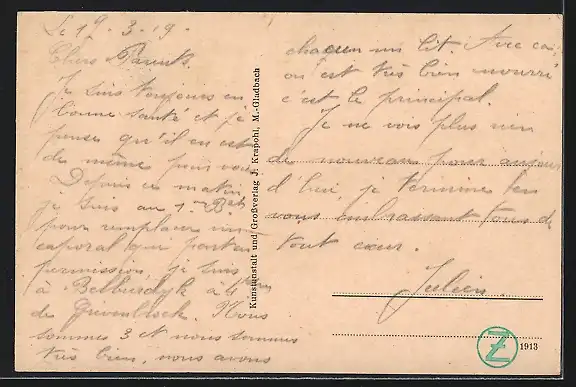 Le 19-3-19-
Chers Parents.
Je suis toujours en
bonne santé et je
pense qu'il en est
de même pour vous
Depuis ce matin
je suis au 1er Bat
pour remplacer un
caporal qui part en
permission, je suis
à à 4 km
de Nous
sommes 3 et nous sommes
très bien, nous avons
chacun un lit. Avec ça,
on est très bien nourri
c'est le principal.
Je ne vois plus rien
de nouveau pour aujour
d'hui je termine en
vous embrassant tous de
tout cœur.
Julien.
Kunstanstalt und Großverlag J. Krapohl, M.-Gladbach
Z
1913